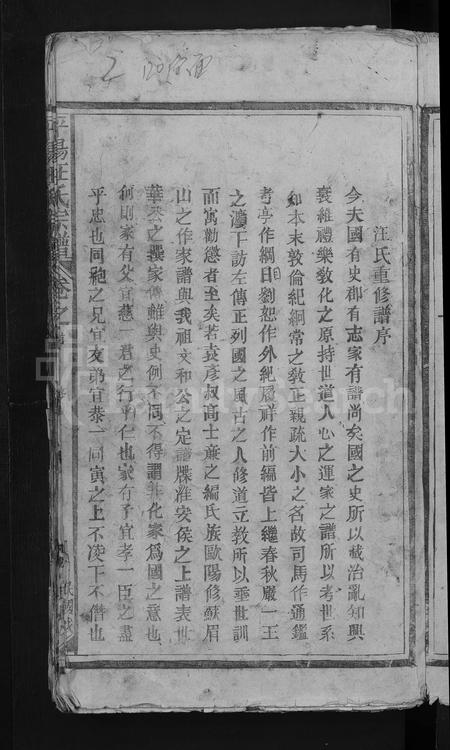 汪氏重修譜序
今夫國有史郡有志家有譜尚矣國之史所以載治亂知興
衰維禮樂敎化之原持世道人心之運家之譜所以考世系
知本末敦倫紀綱常之敎正親疏大小之名故司馬作通鑑
考亭作綱目劉恕作外紀履祥作前編皆上繼春秋嚴一王
之
下訪左傳正列國之風古之人修道立敎所以垂世訓
而寓勸懲者至矣若袁彥叔高士廉之編氏族歐陽修蘇眉
山之作家譜與我祖文和公之定譜牒淮安侯之上譜表世
華
之撰家傳雖與史例不同不得謂非化家爲國之意也
何則家有父宜慈一君之行
仁也家有子宜孝一臣之盡
平忠也同袍之兄宜友弟宜恭一同寅之上不凌下不僭也
平陽汪氏宗譜
卷之